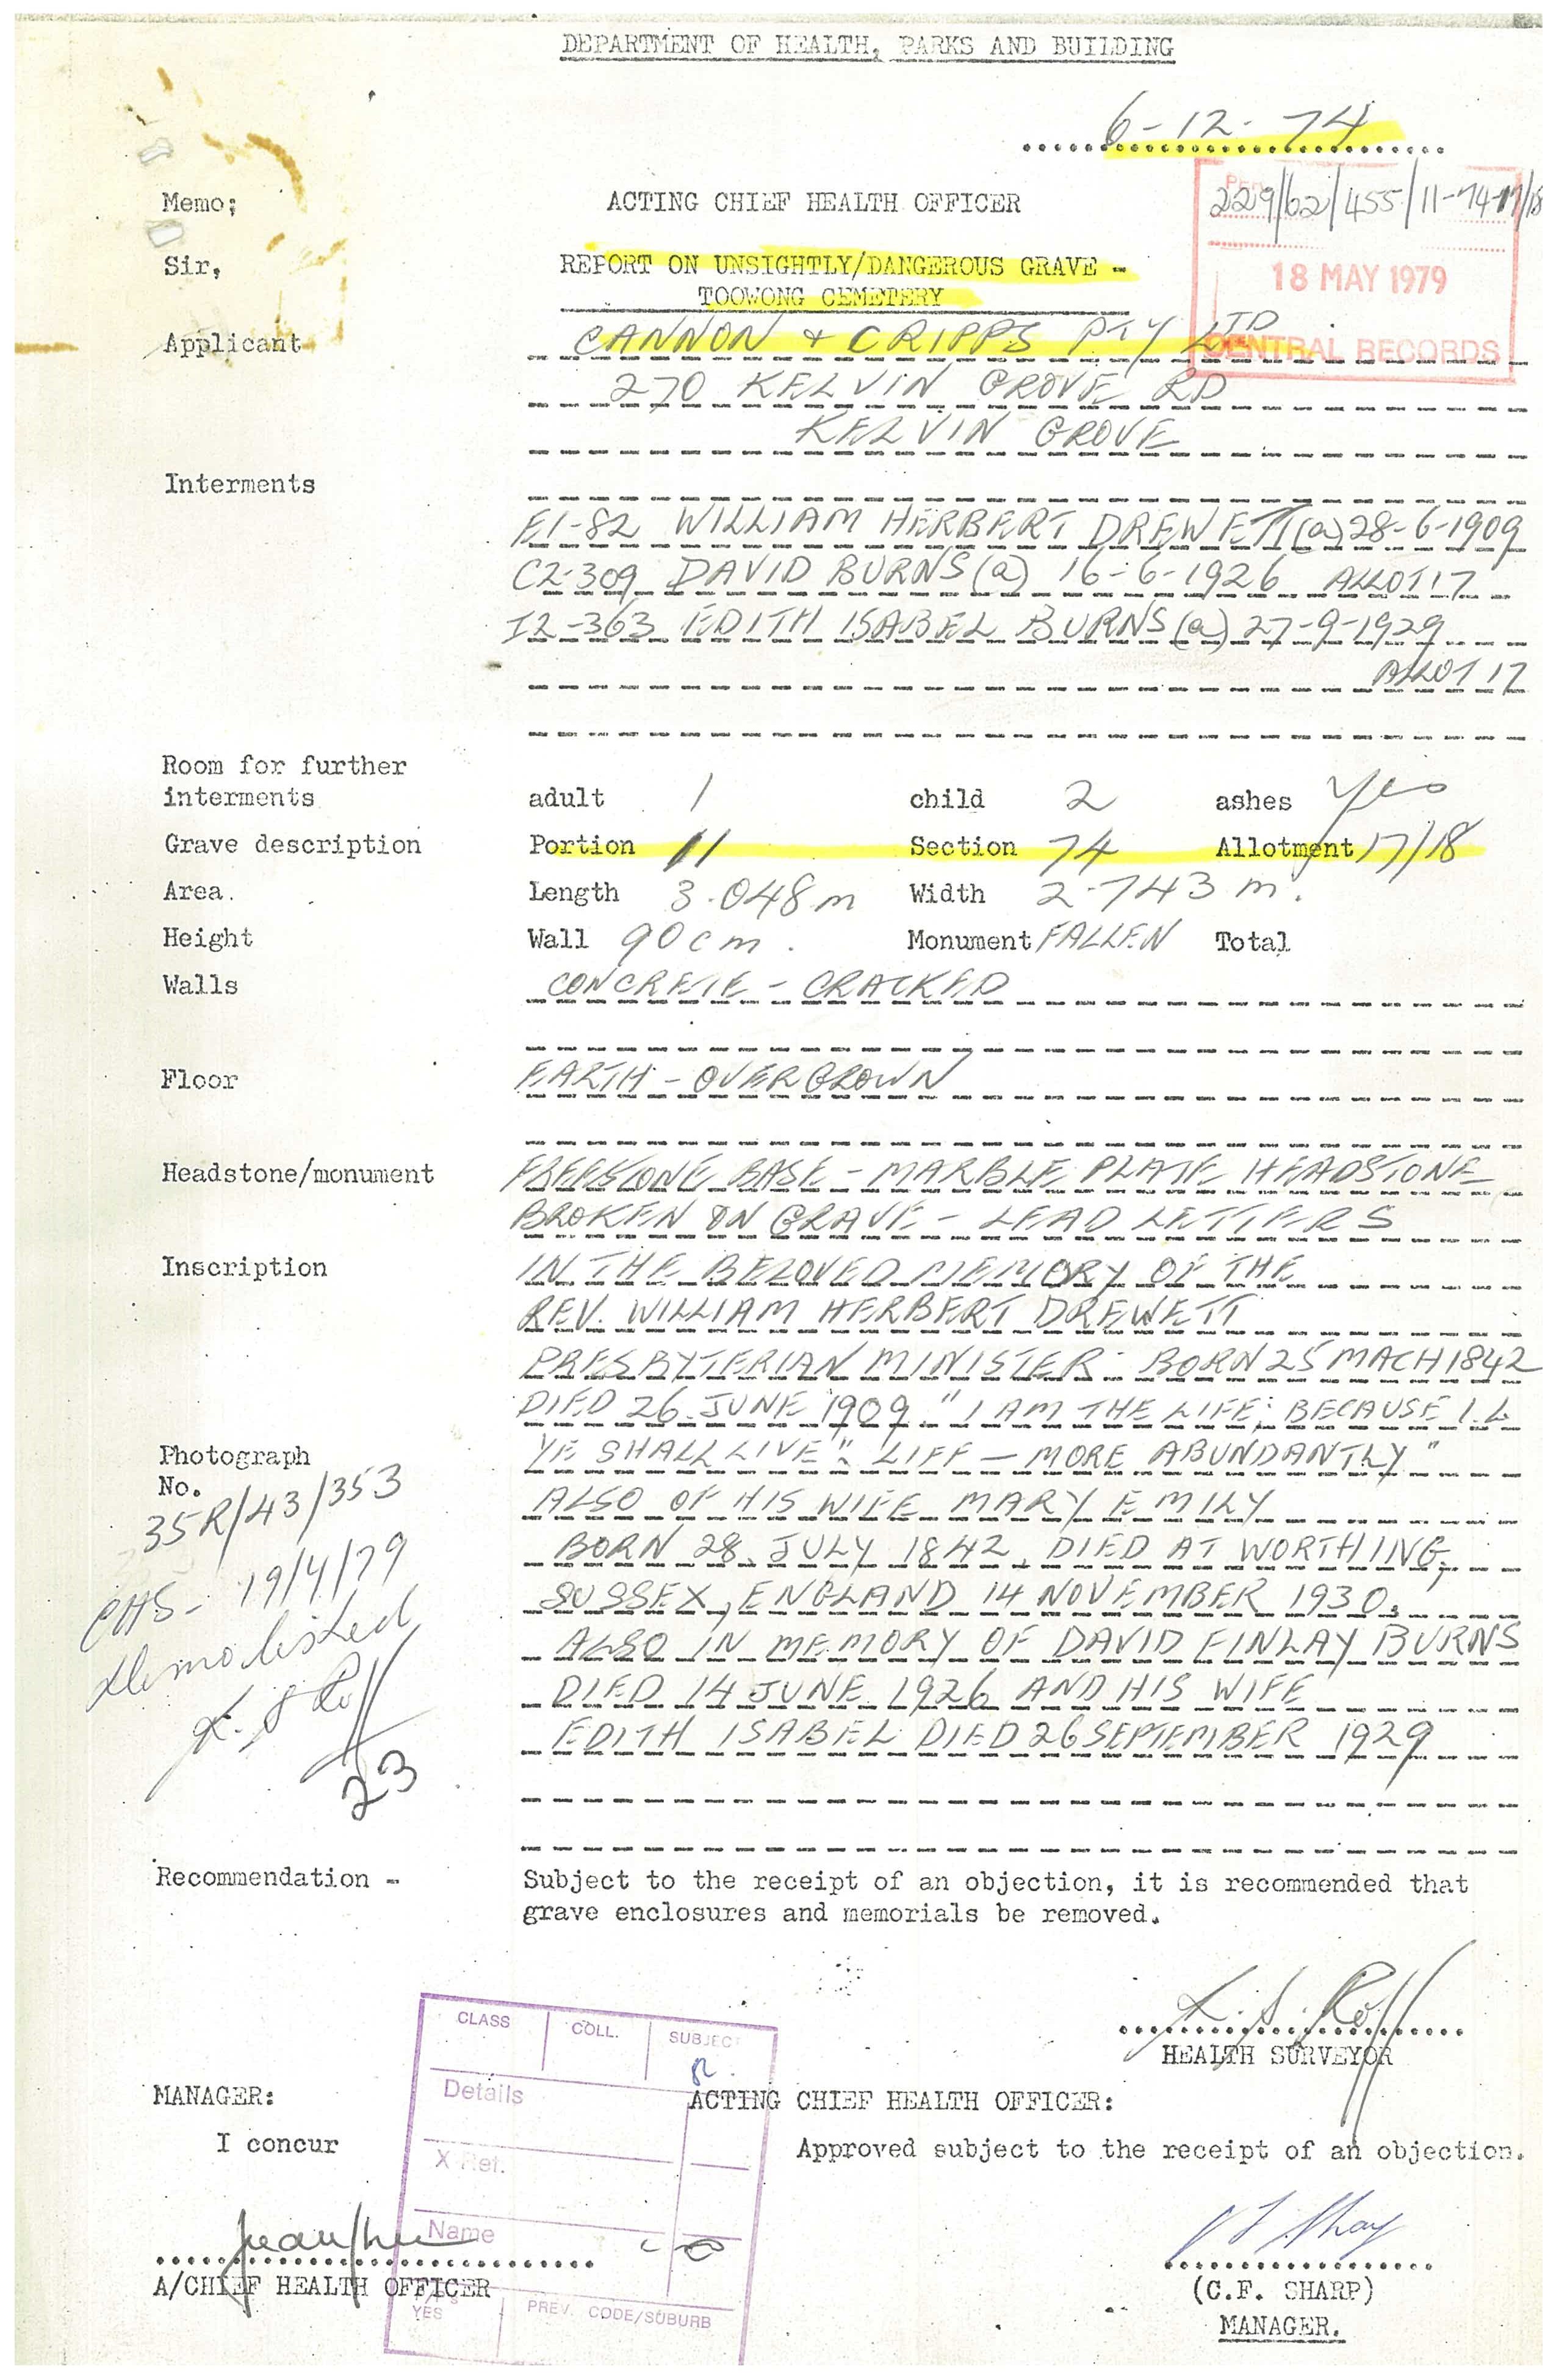 DEPARTMENT OF HEALTH, PARKS AND BUILDING
6-12-74
Memo;
ACTING CHIEF HEALTH OFFICER
229/62/455/11-74-17/18
Sir,
REPORT ON UNSIGHTLY/DANGEROUS GRAVE -
TOOWONG CEMETERY
18 MAY 1979
CENTRAL RECORDS
Applicant
CANNON & CRIPPS PTY LTD
270 KELVIN GROVE RD
KELVIN GROVE
Interments
E1-82 WILLIAM HERBERT DREWETT (a) 28-6-1909
C2-309 DAVID BURNS (a) 16-6-1926 ALLOT 17
I2-363 EDITH ISABEL BURNS (a) 27-9-1929
ALLOT 17
Room for further
interments adult 1 child 2 ashes Yes
Grave description Portion 11 Section 74 Allotment 17/18
Area. Length 3.048m Width 2.743 m.
Height Wall 90cm. Monument FALLEN Total
Walls CONCRETE - CRACKED
Floor EARTH - OVERGROWN
Headstone/monument FREESTONE BASE - MARBLE PLATE HEADSTONE
BROKEN ON GRAVE - LEAD LETTERS
Inscription IN THE BELOVED MEMORY OF THE
REV. WILLIAM HERBERT DREWETT
PRESBYTERIAN MINISTER. BORN 25 MACH 1842
DIED 26 JUNE 1909 "I AM THE LIFE; BECAUSE I.L
YE SHALL LIVE". LIFF - MORE ABUNDANTLY"
ALSO OF HIS WIFE MARY EMILY
BORN 28 JULY 1842 DIED AT WORTHING,
SUSSEX, ENGLAND 14 NOVEMBER 1930.
ALSO IN MEMORY OF DAVID FINLAY BURNS
DIED 14 JUNE 1926 AND HIS WIFE
EDITH ISABEL DIED 26 SEPTEMBER 1929
Photograph
No.
35R/43/353
19/4/79
demolished
23
Recommendation - Subject to the receipt of an objection, it is recommended that
grave enclosures and memorials be removed.
HEALTH SURVEYOR
CLASS COLL. SUBJECT
Details
X Ref.
Name
YES
PREV. CODE/SUBURB
MANAGER:
ACTING CHIEF HEALTH OFFICER:
I concur
Approved subject to the receipt of an objection.
A/CHIEF HEALTH OFFICER
(C.F. SHARP)
MANAGER.